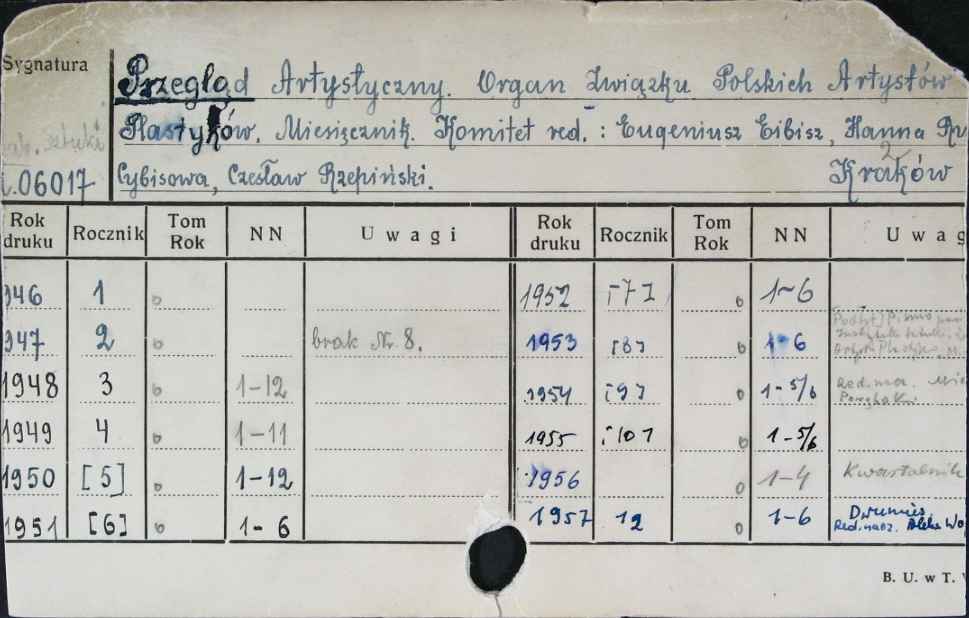 Sygnatura
Przegląd Artystyczny. Organ Związku Polskich Artystów
Plastyków. Miesięcznik. Komitet red.: Eugeniusz Eibisz, Hanna
Cybisowa, Czesław Rzepiński. Kraków
.06017
Rok druku Rocznik Tom Rok NN Uwagi Rok druku Rocznik Tom Rok NN Uwag
946 1 0 1952 [7] 0 1-6
947 2 0 brak Nr. 8. 1953 [8] 0 1-6
1948 3 0 1-12 1954 [9] 0 1-5/6 Red.
1949 4 0 1-11 1955 [10] 0 1-5/6
1950 [5] 0 1-12 1956 0 1-4 Kwartalnik
1951 [6] 0 1-6 1957 12 0 1-6 Dwumies. Red. nacz.
B. U. w T.